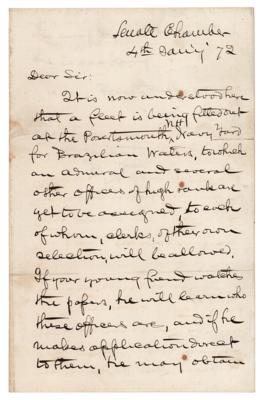 Senate Chamber
4th Jan'y 72
Dear Sir:
It is now understood here
that a fleet is being fitted out
at the Portsmouth, N.H. Navy Yard
for Brazilian Waters, to which
an admiral and several
other officers of high rank are
yet to be assigned, to each
of whom, clerks, of their own
selection, will be allowed.
If your young friend watches
the papers, he will learn who
these officers are, and if he
makes application direct
to them, he may obtain